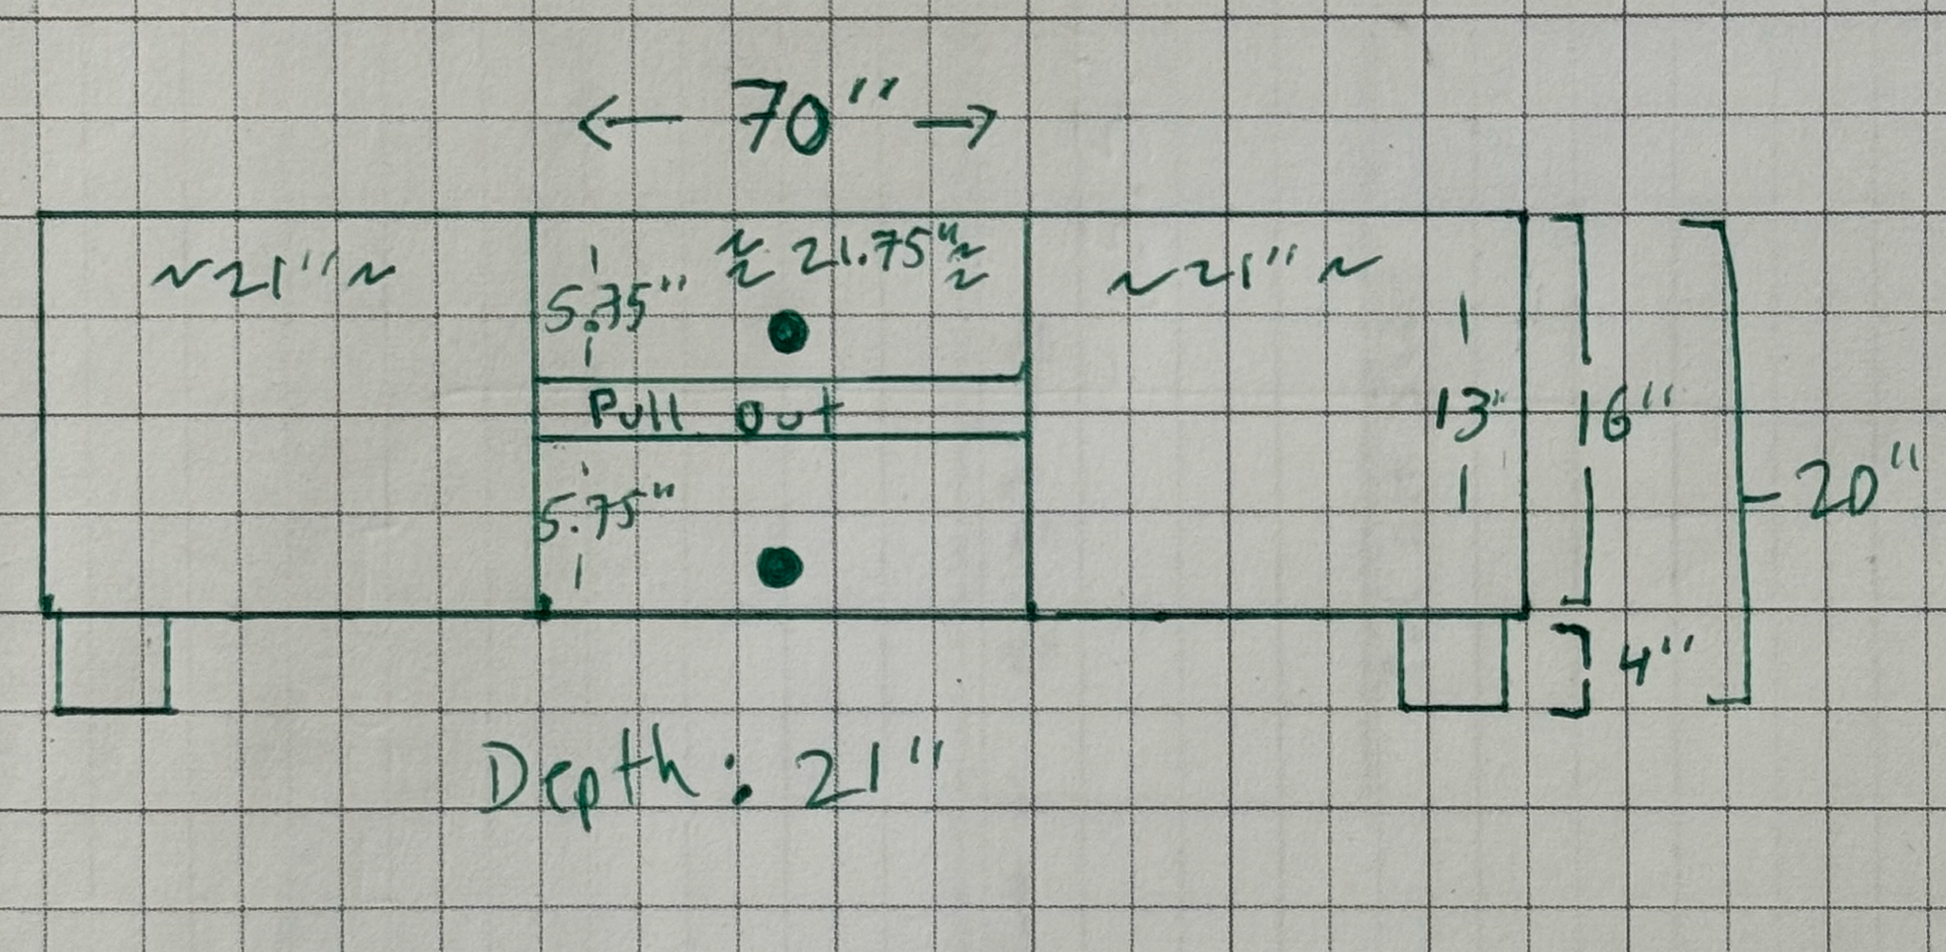 ← 70" →
~21"~
≈ 21.75" ≈
~21"~
5.75"
Pull out
13"
16"
5.75"
20"
4"
Depth: 21"